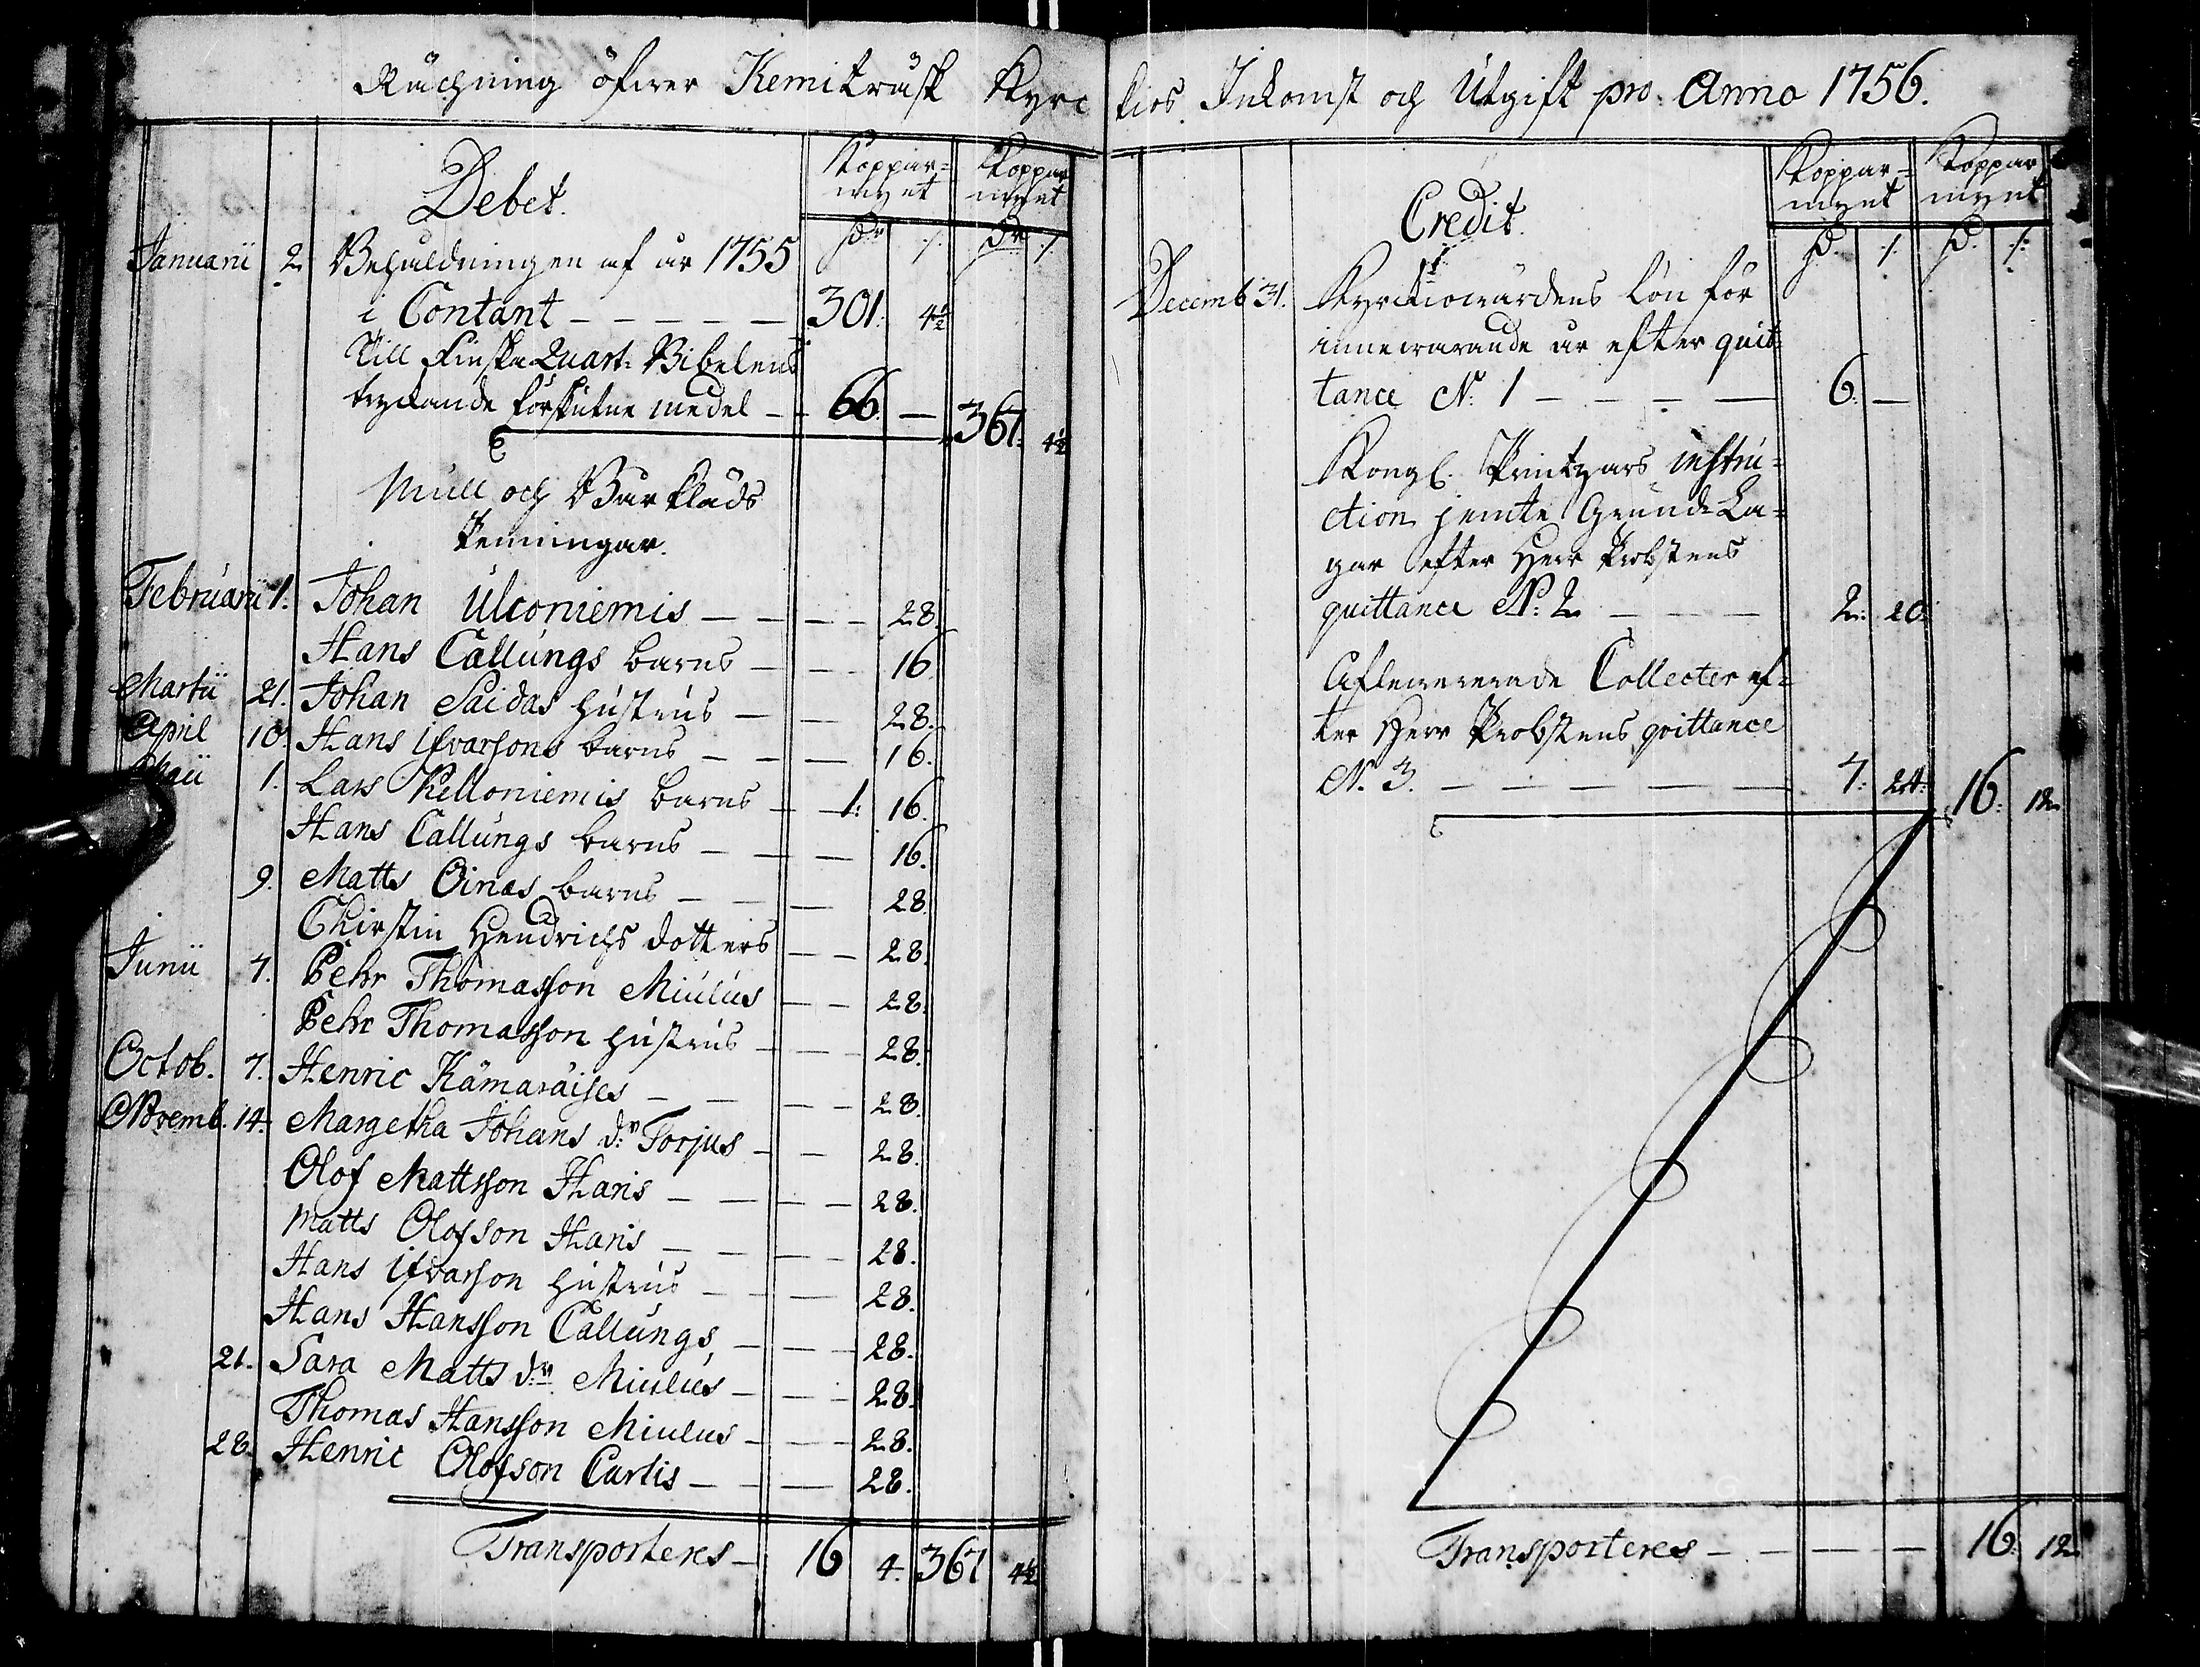 Räckning öfwer Kemiträsk Kyrc kios Inkomst och Utgift pro Anno 1756.
Debet.
Koppar= mynt
Koppar mynt
Dr ./.
Dr ./.
Januarii 2. Behåldningen af år 1755
i Contant — — — — — 301: 4½
Till Finska Quart: Bibelens
tryckande förskutne medel — — 66. — 367: 4½
Mull och Bårkläds
Penningar.
Februarii 1. Johan Ulconiemis — — — — 28.
Hans Callungs barns — — — 16
Martii 21. Johan Saidas hustrus — — 28.
April 10. Hans Ifvarsons barns — — — 16.
Maii 1. Lars Kelloniemis barns — 1: 16.
Hans Callungs barns — — — 16.
9. Matts Oinas barns — — — 28.
Chirstin Hendrichs dotters — — 28.
Junii 7. Pehr Thomasson Miulus — — 28.
Pehr Thomasson hustrus — — — 28.
Octob. 7. Henric Kämäräises — — — — 28.
Novemb. 14. Margetha Johans dr Torjus — — 28.
Olof Mattsson Haris — — — — 28.
Matts Olofson Haris — — — — 28.
Hans Ifvarson hustrus — — — 28.
Hans Hansson Callungs, — — — 28.
21. Sara Matts dr Miulus — — — 28.
Thomas Hansson Miulus — — — 28.
28. Henric Olofson Curtis — — — 28.
Transporteres — 16 4. 367 4½
Credit.
Koppar= mynt
Koppar mynt
D. ./.
D. ./.
Decemb 31. Kyrckiowärdens lön för
innewarande år efter quit=
tance N. 1 — — — — 6. —
Kongl. Printzars instru=
ction jemte Grund-La=
gar efter Herr Probstens
quittance N: 2 — — — 2: 20.
Aflewererade Collecter ef=
ter Herr Probstens qvittance
N. 3. — — — — — — 7: 24: 16: 12.
Transporteres — — — — 16: 12.